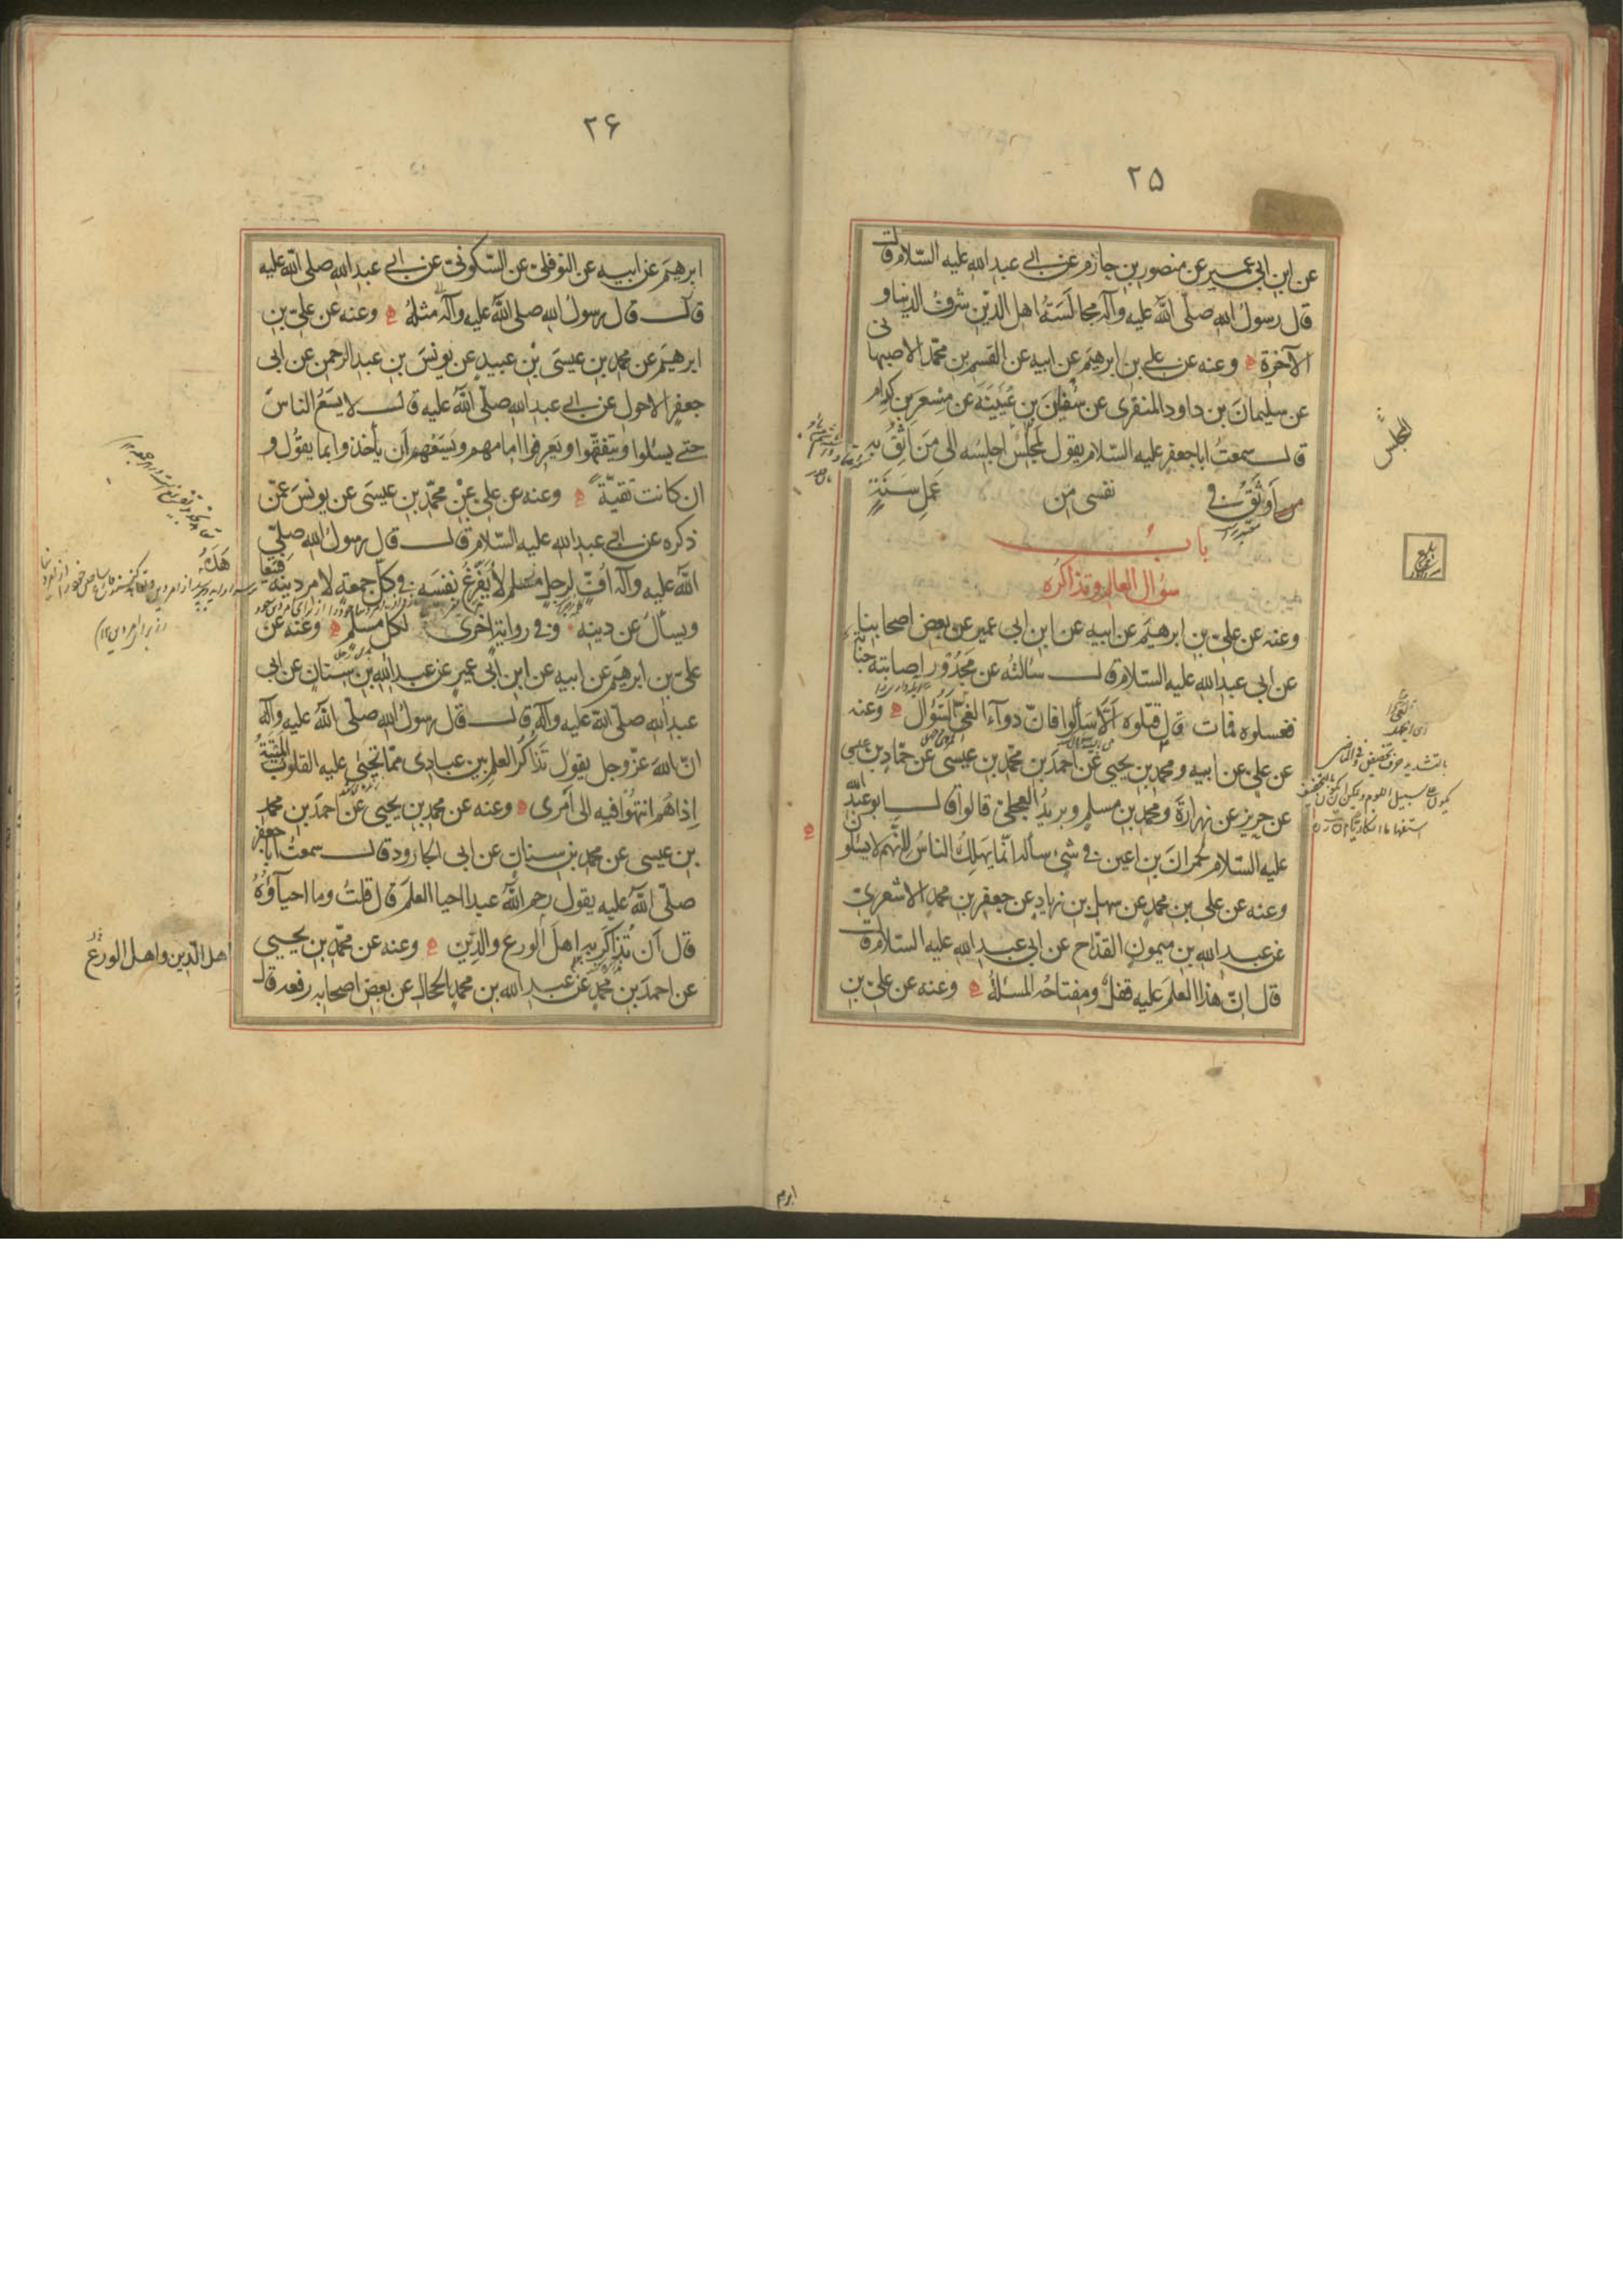 ٢٥
عن ابن ابى عمير عن منصور بن حازم عن ابى عبد الله عليه السّلام قالت
قال رسول الله صلّى الله عليه وآله مجالَسَةُ اهل الدّين شرفُ الدنيا و
الآخرة ه وعنه عن على بن ابرهيم عن ابيه عن القسم بن محمّد الاصبهانى
عن سليمان بن داود المنقرى عن سفين بن عُيَيْنَة عن مِسْعَر بن كدام
قال سمعتُ ابا جعفر عليه السّلام يقول لمَجلسٌ اجلسُه الى مَن اثِقُ به
اوثَقُ فى نفسى من عَمَلِ سَنَةٍ
بابُ
سؤال العالم وتذاكره
وعنه عن علىّ بن ابرهيم عن ابيه عن ابن ابى عمير عن بعض اصحابنا
عن ابى عبد الله عليه السّلام قال سالتُه عن مَجدُورٍ اصابته جنابة
فغسلوه فمات قال قتلوه اَلّا سَألوا فانّ دوآء العِىّ السّؤال ه وعنه
عن علىّ عن ابيه ومحمد بن يحيى عن احمد بن محمّد بن عيسى عن حمّاد بن عيسى
عن حريز عن زرارة ومحمد بن مسلم وبريدُ العجلىّ قالوا قال ابو عبد الله
عليه السلام لحُمرانَ بن اعين فى شئ سأله انّما يهلِكُ الناسُ لانّهم لا يسئلون
وعنه عن علىّ بن محمد عن سهل بن زياد عن جعفر بن محمد الاشعرىّ
عن عبد الله بن ميمون القدّاح عن ابى عبد الله عليه السّلام قالت
قال انّ هذا العلمَ عليه قفلٌ ومفتاحُه المسئلةُ ه وعنه عن علىّ بن
المجلس
بلغ
ابرهيم
٢۶
ابرهيمَ عن ابيه عن النوفلىّ عن السّكونىّ عن ابى عبد الله صلى الله عليه
قال قال رسولُ الله صلى الله عليه وآله مثلهُ ه وعنه عن علىّ بن
ابرهيمَ عن محمد بن عيسى بْن عبيدٍ عن يونسَ بن عبد الرّحمن عن ابى
جعفر الاحول عن ابى عبد الله صلّى الله عليه قال لا يسَعُ الناسَ
حتى يسئلوا ويتفقّهوا ويعرفوا امامهم ويَسَعُهم اَن يأخذوا بما يقُول و
ان كانت تقيّةً ه وعنه عن علىّ عنْ محمّد بن عيسى عن يونسَ عمّن
ذكره عن ابى عبد الله عليه السّلام قال قال رسولُ الله صلّى
الله عليه وآله اُفّ لرجلٍ مسلم لا يُفَرِّغُ نفسَه فى كلّ جمعةٍ لامر دينه
ويسأل عن دينه وفى رواية اخرى لكلّ مسلم ه وعنه عن
علىّ بن ابرهيم عن ابيه عن ابن ابى عمير عن عبد الله بن سنان عن ابى
عبد الله صلّى الله عليه وآله قال قال رسولُ الله صلّى الله عليه وآله
انّ اللهَ عزّ وجل يقول تَذاكُر العلم بين عبادى ممّا تحيى عليه القلوبُ الميّتةُ
اِذا هُم انتهَوا فيه الى اَمرى ه وعنه عن محمد بن يحيى عن احمدَ بن محمد
بن عيسى عن محمد بن سنانٍ عن ابى الجارود قال سمعت ابا جعفر
صلّى الله عليه يقول رحم اللهُ عبدا احيا العلمَ قال قلتُ وما احيآؤُهُ
قال اَن يُذاكَر به اهلَ الورع والدّين ه وعنه عن محمّد بن يحيى
عن احمدَ بن محمدٍ عن عبد الله بن محمد الحجال عن بعض اصحابه رفعه قال
اهل الدّين واهل الورع